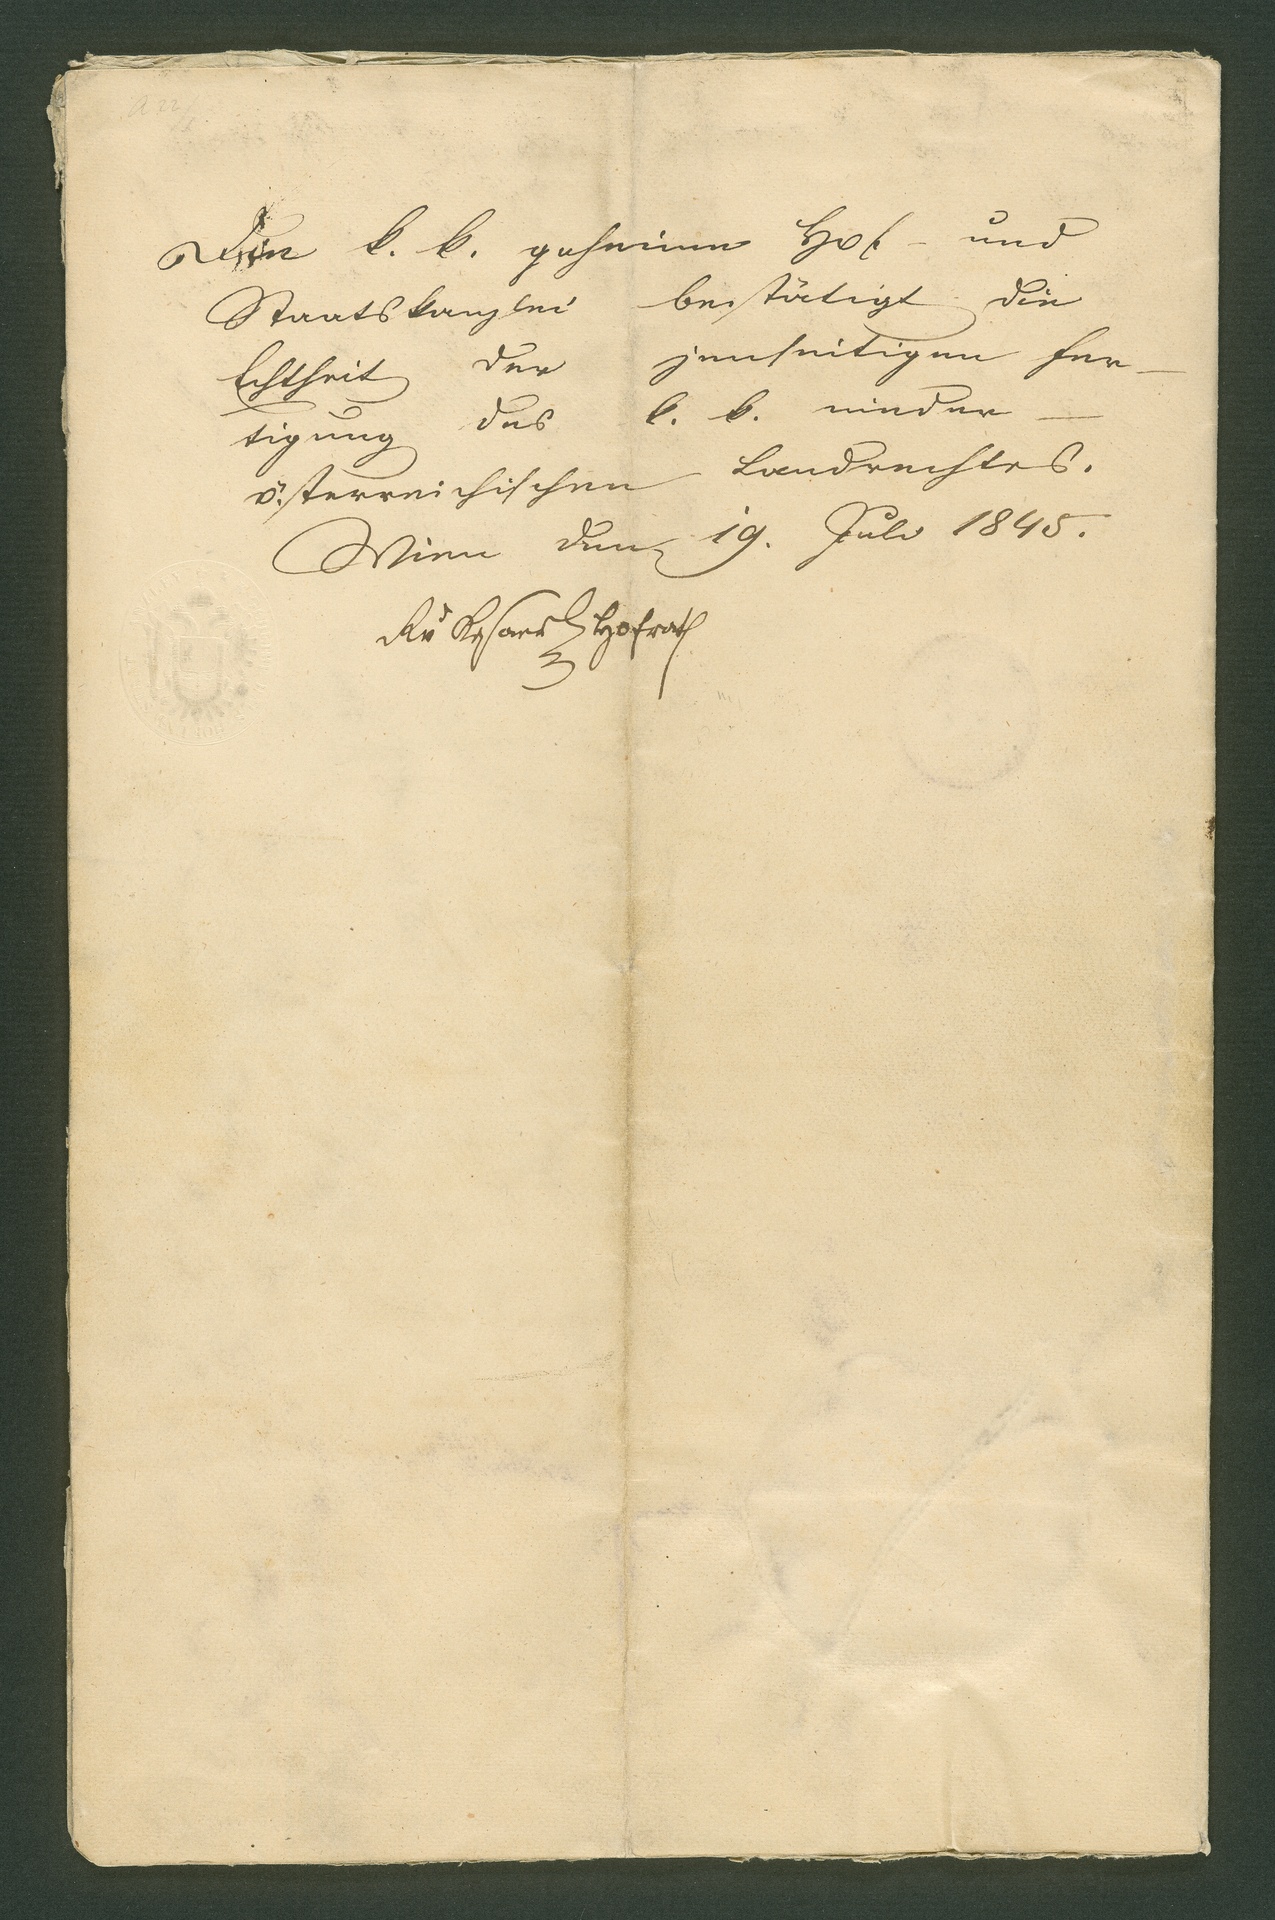 a 22/1
Die k. k. geheime Hof- und
Staatskanzlei bestätigt die
Echtheit der jenseitigen Fer-
tigung des k. k. nieder-
österreichischen Landrechtes.
Wien den 19. Juli 1845.
Hofrath